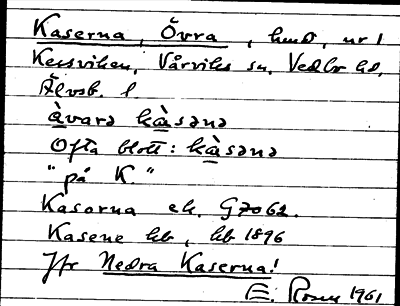 Kaserna, Övra, hmd, ur 1
Kersviken, Vårviks sn, Vedbo hd,
Älvsb. l
àvarə kàsənə
Ofta blott: kàsənə
"på K."
Kasorna ek. G7062.
Kasene hb, hb 1896
Jfr Nedra Kaserna!
E. Rosen 1961